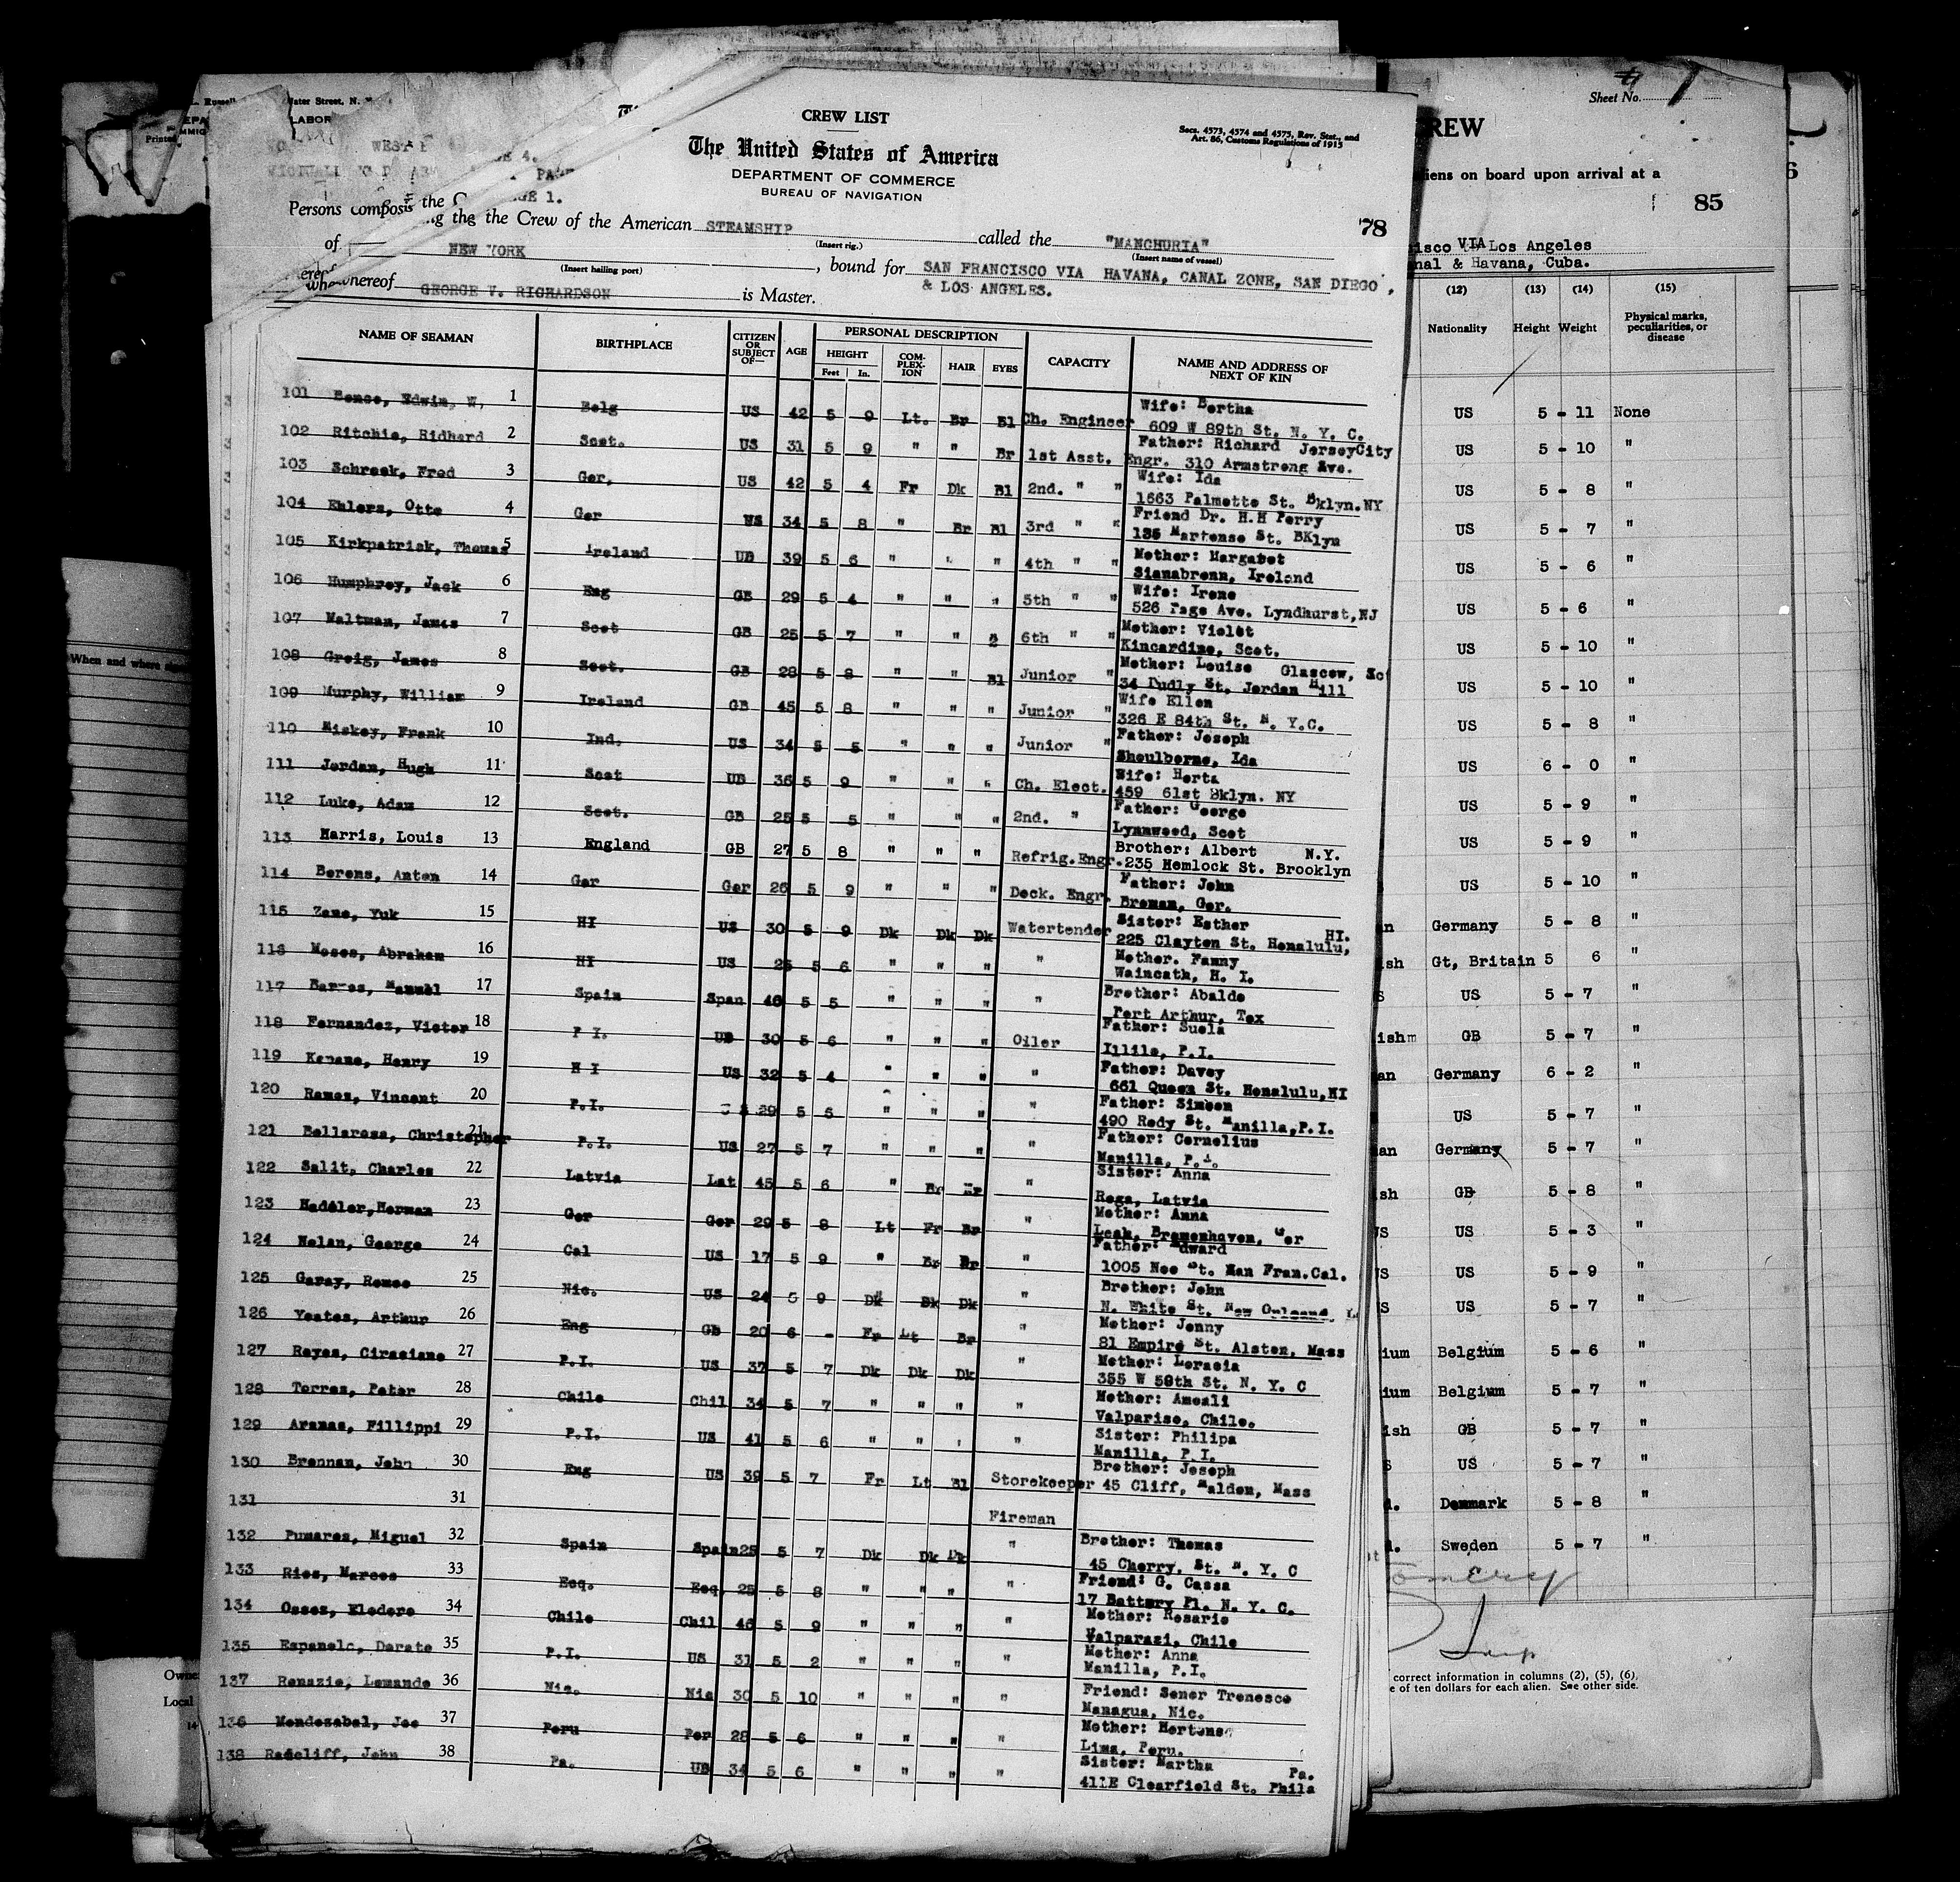 CREW LIST
Secs. 4573, 4574 and 4575, Rev. Stat., and
Art. 86, Customs Regulations of 1915
The United States of America
DEPARTMENT OF COMMERCE
BUREAU OF NAVIGATION
78
the Crew of the American STEAMSHIP called the "MANCHURIA"
(Insert rig.) (Insert name of vessel)
of NEW YORK, bound for SAN FRANCISCO VIA HAVANA, CANAL ZONE, SAN DIEGO,
(Insert hailing port) & LOS ANGELES.
whereof GEORGE V. RICHARDSON is Master.
NAME OF SEAMAN BIRTHPLACE CITIZEN OR SUBJECT OF— AGE PERSONAL DESCRIPTION CAPACITY NAME AND ADDRESS OF NEXT OF KIN
HEIGHT COMPLEXION HAIR EYES
Feet In.
101 Bence, Edwin, W, 1 Belg US 42 5 9 Lt. Br Bl Ch. Engineer Wife: Bertha
609 W 89th St. N. Y. C.
102 Ritchie, Ridhard 2 Scot. US 31 5 9 " " Br 1st Asst. Engr. Father: Richard JerseyCity
310 Armstrong Ave.
103 Schreek, Fred 3 Ger. US 42 5 4 Fr Dk Bl 2nd. " " Wife: Ida
1663 Palmette St. Bklyn.NY
104 Ehlers, Otto 4 Ger US 34 5 8 " Br Bl 3rd " " Friend Dr. H.H Perry
135 Martense St. BKlyn
105 Kirkpatrick, Thomas 5 Ireland 39 5 6 " " " 4th " " Mother: Margaret
Ireland
106 Humphrey, Jack 6 Eng GB 29 5 4 " " " 5th " " Wife: Irene
526 Page Ave. Lyndhurst,NJ
107 Maltman, James 7 Scot GB 25 5 7 " " 6th " " Mother: Violet
Kincardine, Scot.
108 Greig, James 8 Scot. GB 28 5 8 " " Bl Junior " Mother: Louise Glascow, Sc
34 Dudly St. Jordan Hill
109 Murphy, William 9 Ireland GB 45 5 8 " " " Junior " Wife Ellen
326 E 84th St. N. Y.C.
110 Miskey, Frank 10 Ind. US 34 5 5 " " " Junior " Father: Joseph
Shoulborne, Ida
111 Jordan, Hugh 11 Scot 36 5 9 " " " Ch. Elect. Wife: Herta
459 61st Bklyn. NY
112 Luke, Adam 12 Scot. GB 25 5 5 " " " 2nd. " Father: George
Lynnwood, Scot
113 Harris, Louis 13 England GB 27 5 8 " " " Refrig.Engr. Brother: Albert N.Y.
235 Hemlock St. Brooklyn
114 Berens, Anton 14 Ger Ger 26 5 9 " " " Deck. Engr. Father: John
Breman, Ger.
115 Zane, Yuk 15 HI US 30 5 9 Dk Dk Dk Watertender Sister: Esther HI.
225 Clayton St. Honalulu,
116 Moses, Abraham 16 HI US 25 5 6 " " " " Mother. Fanny
Waincath, H. I.
117 Manuel 17 Spain Span 46 5 5 " " " " Brother: Abalde
Port Arthur, Tex
118 Fernandez, Victor 18 P I. US 30 5 6 " " " Oiler Father: Suela
Illilo, P.I.
119 Kapane, Henry 19 H I US 32 5 4 " " " " Father: Davey
661 Queen St. Honalulu,HI
120 Ramos, Vincent 20 P.I. 29 5 5 " " " " Father: Simeon
490 Redy St. Manilla,P.I.
121 Bellarosa, Christopher 21 P.I. US 27 5 7 " " " " Father: Cornelius
Manilla, P.I.
122 Salit, Charles 22 Latvia Lat 45 5 6 " Br Br " Sister: Anna
Rega, Latvia
123 Hadeler,Herman 23 Ger Ger 29 5 8 Lt Fr Br " Mother: Anna
Bremenhaven, Ger
124 Nolan, George 24 Cal US 17 5 9 " Br Br " Father: Edward
1005 Noe St. San Fran.Cal.
125 Garay, Romeo 25 Nic. US 24 5 9 Dk Dk Dk " Brother: John
N. White St. New Orleans,
126 Yeates, Arthur 26 Eng GB 20 6 - Fr Lt Br " Mother: Jenny
81 Empire St. Alston, Mass
127 Reyes, Ciraciano 27 P.I. US 37 5 7 Dk Dk Dk " Mother: Loracia
355 W 59th St. N. Y. C
128 Torres, Peter 28 Chile Chil 34 5 7 " " " " Mother: Ameali
Valpariso, Chile.
129 Aranas, Fillippi 29 P.I. US 41 5 6 " " " Sister: Philipa
Manilla, P.I.
130 Brennan, John 30 Eng US 39 5 7 Fr Lt Bl Storekeeper Brother: Joseph
45 Cliff, Malden, Mass
131 31 Fireman
132 Pumares, Miguel 32 Spain Spain 25 5 7 Dk Dk Dk " Brother: Thomas
45 Cherry, St. N. Y. C
133 Rios, Marcos 33 Ecq. Ecq. 25 5 8 " " " " Friend: G. Cassa
17 Battery Pl. N. Y. C.
134 Osses, Eledoro 34 Chile Chil 46 5 9 " " " " Mother: Rosario
Valparazi, Chile
135 Espanelo, Darate 35 P.I. US 31 5 2 " " " " Mother: Anna
Manilla, P.I.
137 Renazie, Lemande 36 Nic. Nic 30 5 10 " " " " Friend: Senor Trenesco
Managua, Nic.
136 Mendezabal, Joe 37 Peru Per 28 5 6 " " " " Mother: Hortense
Lima, Peru.
138 Radcliff, John 38 Pa. US 34 5 6 " " " " Sister: Martha Pa.
411E Clearfield St. Phila
Sheet No.
CREW
aliens on board upon arrival at a
85
VIA Los Angeles
& Havana, Cuba.
(12) (13) (14) (15)
Nationality Height Weight Physical marks, peculiarities, or disease
US 5 - 11 None
US 5 - 10 "
US 5 - 8 "
US 5 - 7 "
US 5 - 6 "
US 5 - 6 "
US 5 - 10 "
US 5 - 10 "
US 5 - 8 "
US 6 - 0 "
US 5 - 9 "
US 5 - 9 "
US 5 - 10 "
Germany 5 - 8 "
Gt, Britain 5 6 "
US 5 - 7 "
GB 5 - 7 "
Germany 6 - 2 "
US 5 - 7 "
Germany 5 - 7 "
GB 5 - 8 "
US 5 - 3 "
US 5 - 9 "
US 5 - 7 "
Belgium 5 - 6 "
Belgium 5 - 7 "
GB 5 - 7 "
US 5 - 7 "
Denmark 5 - 8 "
Sweden 5 - 7 "
correct information in columns (2), (5), (6).
of ten dollars for each alien. See other side.
When and where